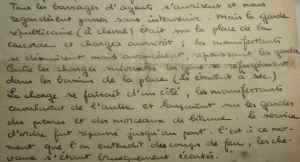 Tous les barrages d'agents s'ouvraient et nous
regardaient passer sans intervenir. Mais la garde
républicaine (à cheval) était sur la place de la
Concorde et chargea aussitôt; les manifestants
se démenaient mais avançaient repoussant les gardes
Entre les charges on se réfugiait
dans les bassins de la place (ils étaient à sec)
La charge se faisait d'un côté, les manifestants
cavalaient de l'autre et lançaient sur les gardes
des pierres et des morceaux de bitume. le service
d'ordre fut repoussé jusqu'au pont. C'est à ce mo-
ment que l'on entendit des coups de feu, les che-
vaux s'étant brusquement écartés.